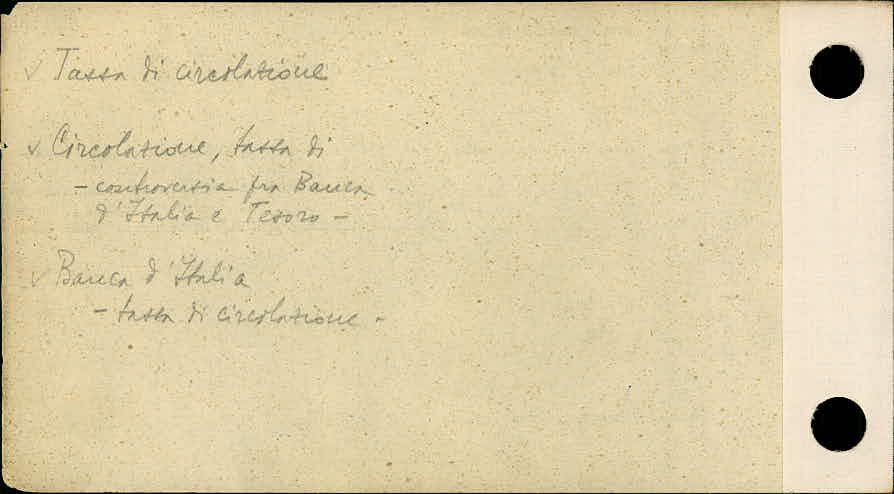 ✓ Tassa di circolazione
✓ Circolazione, tassa di
- controversia fra Banca
d'Italia e Tesoro -
✓ Banca d'Italia
- tassa di circolazione -